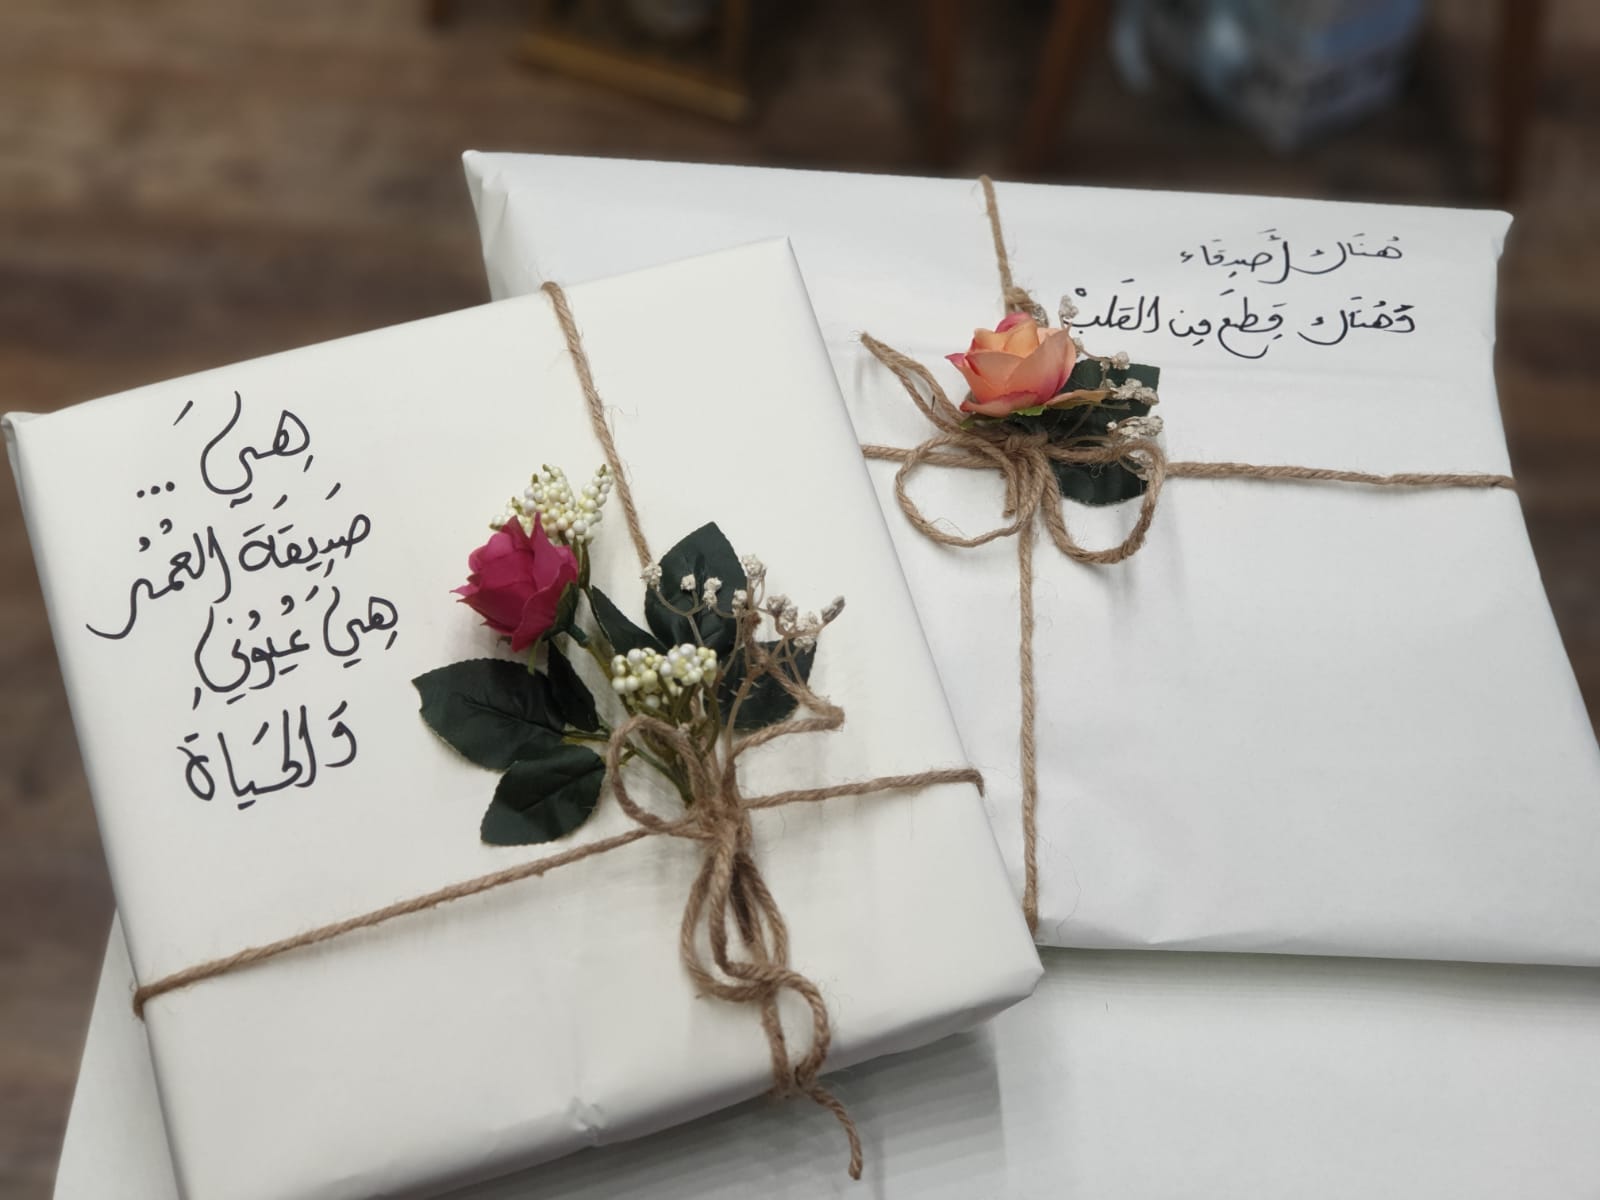 هِيَ ...
صَدِيقَةَ العُمُر
هِيَ عُيُونِي
وَالحَيَاة
هُنَاكَ أَصدِقَاء
وَهُنَاكَ قِطَع مِن القَلبْ